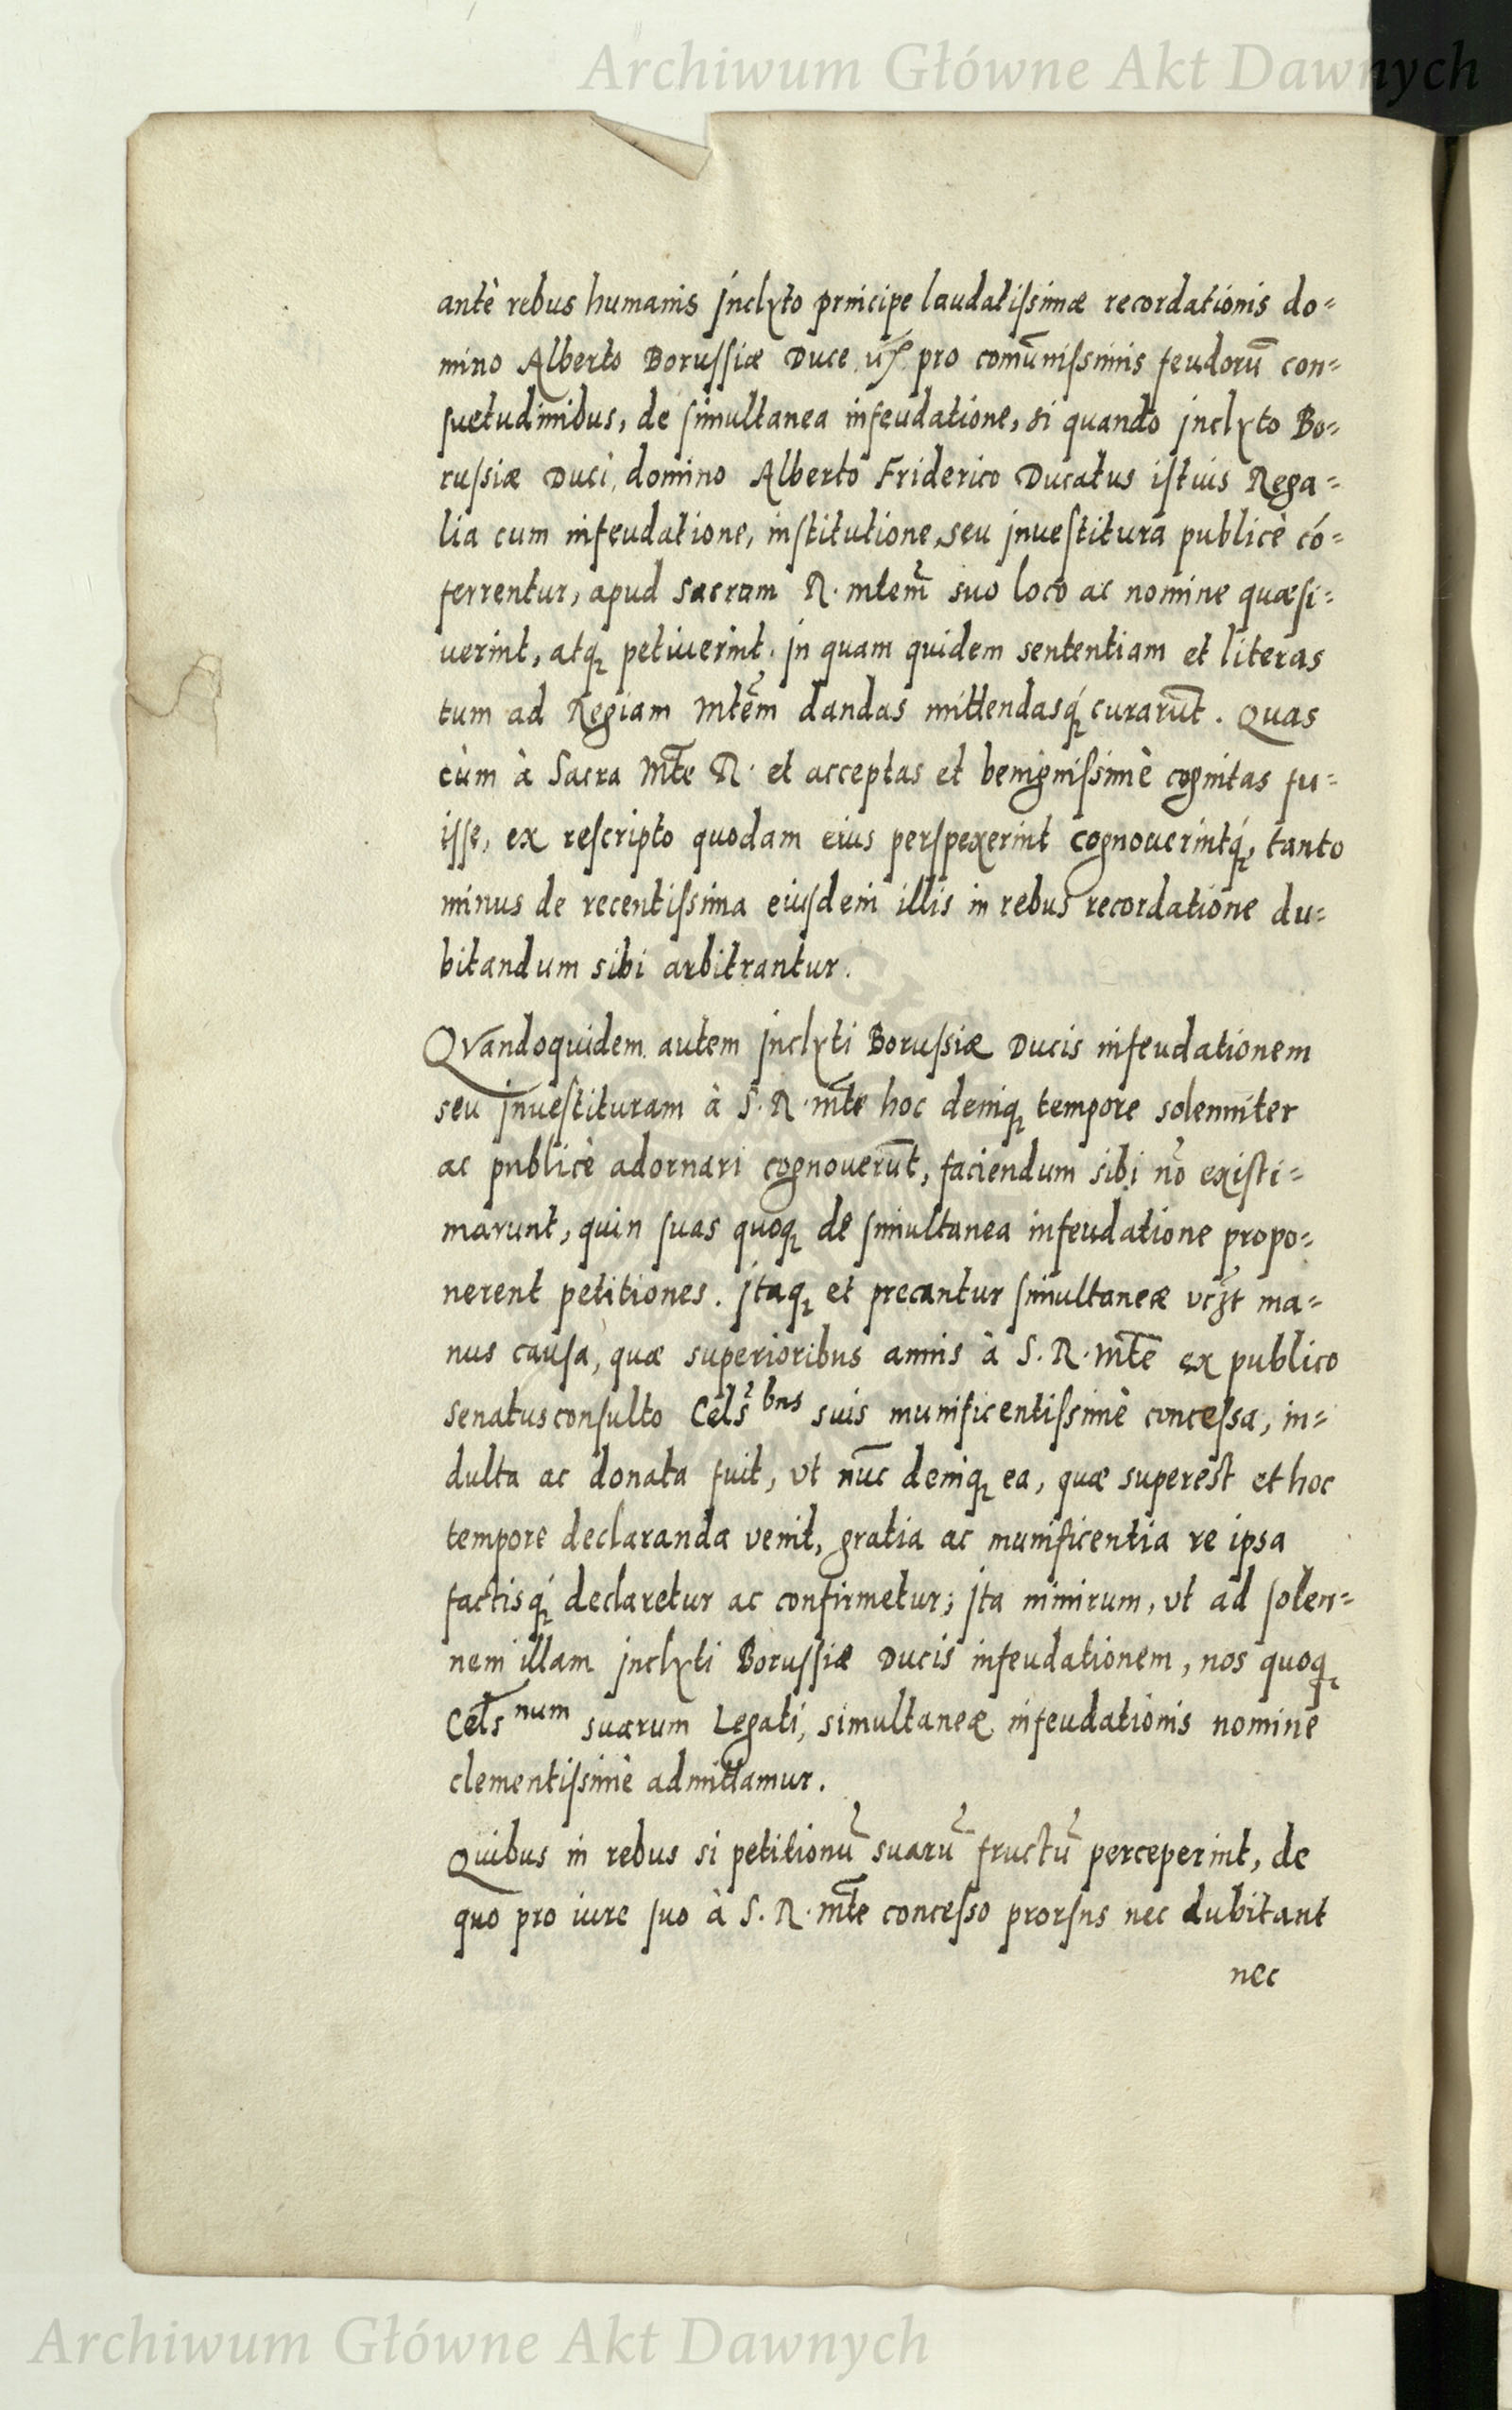 Archiwum Główne Akt Dawnych
antè rebus humanis jnclyto principe laudatiſsimæ recordationis do=
mino Alberto Boruſsiæ Duce, pro comūniſsimis feudorū con=
ſuetudinibus, de ſimultanea infeudatione, si quando jnclyto Bo=
ruſsiæ Duci, domino Alberto Friderico Ducatus iſtius Rega=
lia cum infeudatione, inſtitutione, seu jnueſtitura publicè có=
ferrentur, apud Sacram R. mtem̃ suo loco ac nomine quæſi=
uerint, atq̨ petiuerint. jn quam quidem sententiam et literas
tum ad Regiam Mtem̃ dandas mittendasq́ curarūt. Quas
cùm à Sacra Mt̃e R. et acceptas et benigniſsimè cognitas fu=
iſſe, ex reſcripto quodam eius perſpexerint cognouerintq́, tanto
minus de recentiſsima eiuſdem illis in rebus recordatione du=
bitandum sibi arbitrantur.
QVandoquidem autem jnclyti Boruſsiæ Ducis infeudationem
seu jnueſtituram à S. R. mt̃e hoc deniq̨ tempore solenniter
ac publicè adornari cognouerūt, faciendum sibi nõ exiſti=
marunt, quin ſuas quoq̨ de ſimultanea infeudatione propo=
nerent petitiones. jtaq̨ et precantur ſimultaneæ ma=
nus cauſa, quæ superioribus annis à S. R. mt̃e ex publico
senatusconſulto Cels^bus suis munificentiſsimè conceſsa, in=
dulta ac donata fuit, vt nūc deniq̨ ea, quæ supereſt et hoc
tempore declaranda venit, gratia ac munificentia re ipsa
factisq́ declaretur ac confirmetur; jta nimirum, vt ad ſolen=
nem illam jnclyti Boruſſiæ Ducis infeudationem, nos quoq̨
Cels^num suarum Legati, simultaneæ infeudationis nomine
clementiſsimè admittamur.
Quibus in rebus si petitionū suarū fructū perceperint, de
quo pro iure ſuo à S. R. mt̃e conceſso prorſus nec dubitant
nec
Archiwum Główne Akt Dawnych